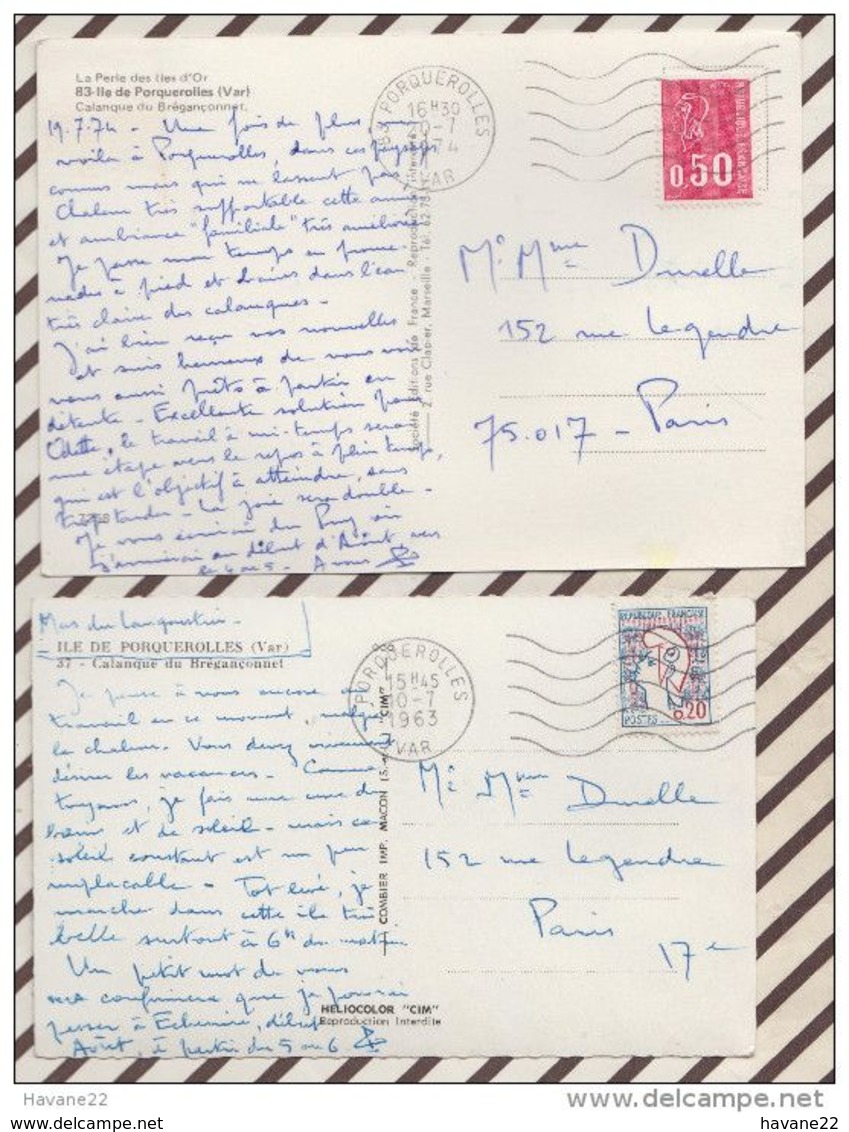 La Perle des Iles d'Or
83-Ile de Porquerolles (Var)
Calanque du Brégançonnet.
19.7.74 - Une fois de plus, me
voilà à Porquerolles, dans ces paysages
connus mais qui ne lassent pas
Chaleur très supportable cette année
et ambiance "familiale" très améliorée
Je passe mon temps en prome-
nades à pied et bains dans l'eau
très claire des calanques -
J'ai bien reçu vos nouvelles
et suis heureux de vous voir
vous aussi prêts à partir en
détente - Excellente solution pour
Odette, le travail à mi-temps sera
une étape vers le repos à plein temps,
qui est l'objectif à atteindre, sans
trop tarder - La joie sera double -
Je vous écrirai du Puy où
j'arriverai au début d'Août, vers
le 4 ou 5 - A vous
Société éditions de France - Reproduction interdite
2, rue Clapier, Marseille - Tél. 62.78
83 PORQUEROLLES
16H30
10-7
74
VAR
REPUBLIQUE FRANCAISE
0,50
Mr Mme Durelle
152 rue Legendre
75.017 - Paris
Mas du Langoustier -
ILE DE PORQUEROLLES (Var)
37 - Calanque du Brégançonnet
Je pense à vous encore au
travail en ce moment malgré
la chaleur. Vous devez vraiment
désirer les vacances - Comme
toujours, je fais une cure de
bains et de soleil - mais ce
soleil constant est un peu
implacable - Tôt levé, je
marche dans cette île très
belle surtout à 6h du matin
Un petit mot de vous
me confirmera que je pourrai
passer à Echemiré, début
Août, à partir du 5 ou 6
COMBIER IMP. MACON (S.-et-L.) "CIM"
HELIOCOLOR "CIM"
Reproduction Interdite
PORQUEROLLES
15H45
10-7
1963
VAR
REPUBLIQUE FRANÇAISE
POSTES
0,20
Mr Mme Durelle
152 rue Legendre
Paris
17e
Havane22
delcampe.net
havane22